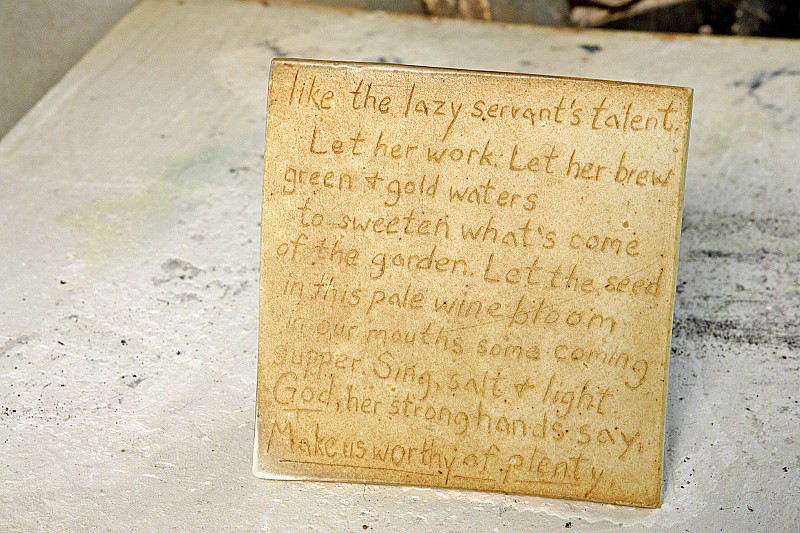 like the lazy servant's talent.
Let her work: Let her brew
green + gold waters
to sweeten what's come
of the garden. Let the seed
in this pale wine bloom
in our mouths some coming
supper. Sing, salt + light
God, her strong hands say,
Make us worthy of plenty.